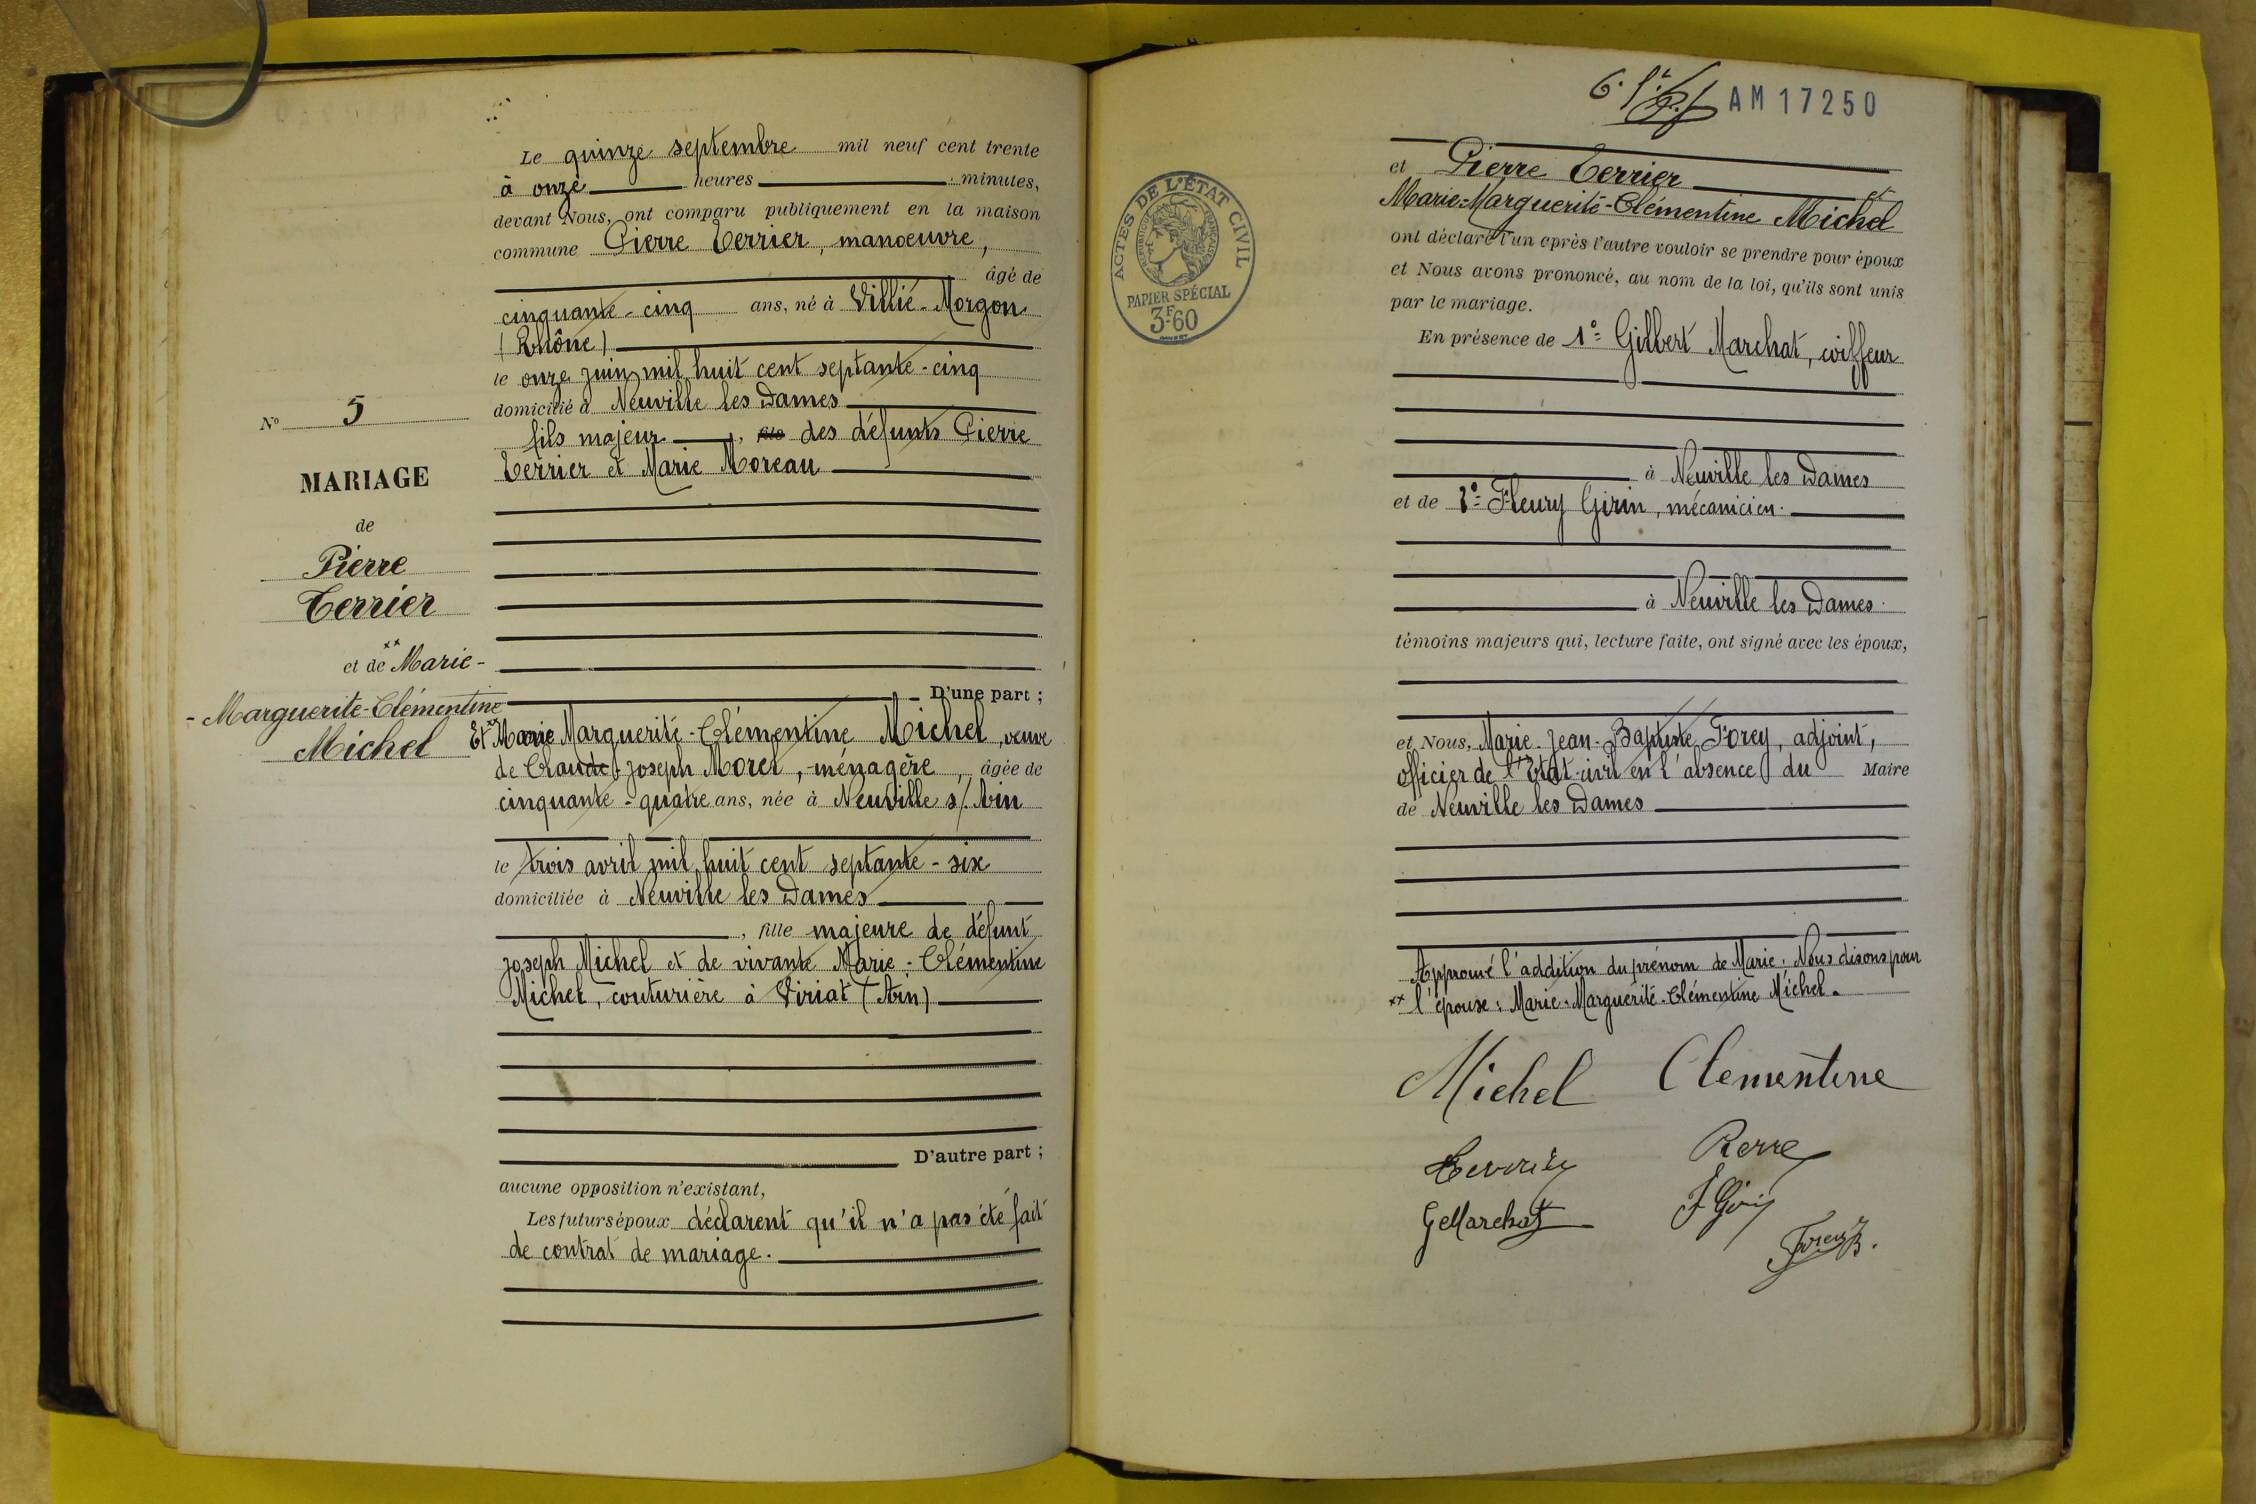 Le quinze septembre mil neuf cent trente
à onze heures minutes,
devant Nous, ont comparu publiquement en la maison
commune Pierre Terrier, manoeuvre,
âgé de
cinquante-cinq ans, né à Villié-Morgon
(Rhône)
le onze juin mil huit cent septante-cinq
domicilié à Neuville les Dames
fils majeur, fils des défunts Pierre
Terrier et Marie Moreau
D'une part ;
Et xx Marie Marguerite-Clémentine Michel, veuve
de Claude Joseph Morel, ménagère, âgée de
cinquante-quatre ans, née à Neuville s/. Ain
le trois avril mil huit cent septante-six
domiciliée à Neuville les Dames
, fille majeure de défunt
Joseph Michel et de vivante Marie-Clémentine
Michel, couturière à Viriat (Ain)
D'autre part ;
aucune opposition n'existant,
Les futurs époux déclarent qu'il n'a pas été fait
de contrat de mariage.
No 5
MARIAGE
de
Pierre
Terrier
et de xx Marie-
-Marguerite-Clémentine
Michel
AM 17250
et Pierre Terrier et
Marie-Marguerite-Clémentine Michel
ont déclaré l'un après l'autre vouloir se prendre pour époux
et Nous avons prononcé, au nom de la loi, qu'ils sont unis
par le mariage.
En présence de 1º= Gilbert Marchat, coiffeur
à Neuville les Dames
et de 2º= Fleury Girin, mécanicien.
à Neuville les Dames.
témoins majeurs qui, lecture faite, ont signé avec les époux,
et Nous, Marie-Jean-Baptiste Forey, adjoint,
officier de l'Etat-civil en l'absence du Maire
de Neuville les Dames
Approuvé l'addition du prénom de Marie. Nous disons pour
xx l'épouse: Marie-Marguerite-Clémentine Michel.
Michel Clementine
Terrier Pierre
GMarchat F Girin
Forey B.
ACTES DE L'ÉTAT CIVIL
RÉPUBLIQUE FRANÇAISE
PAPIER SPÉCIAL
3F60